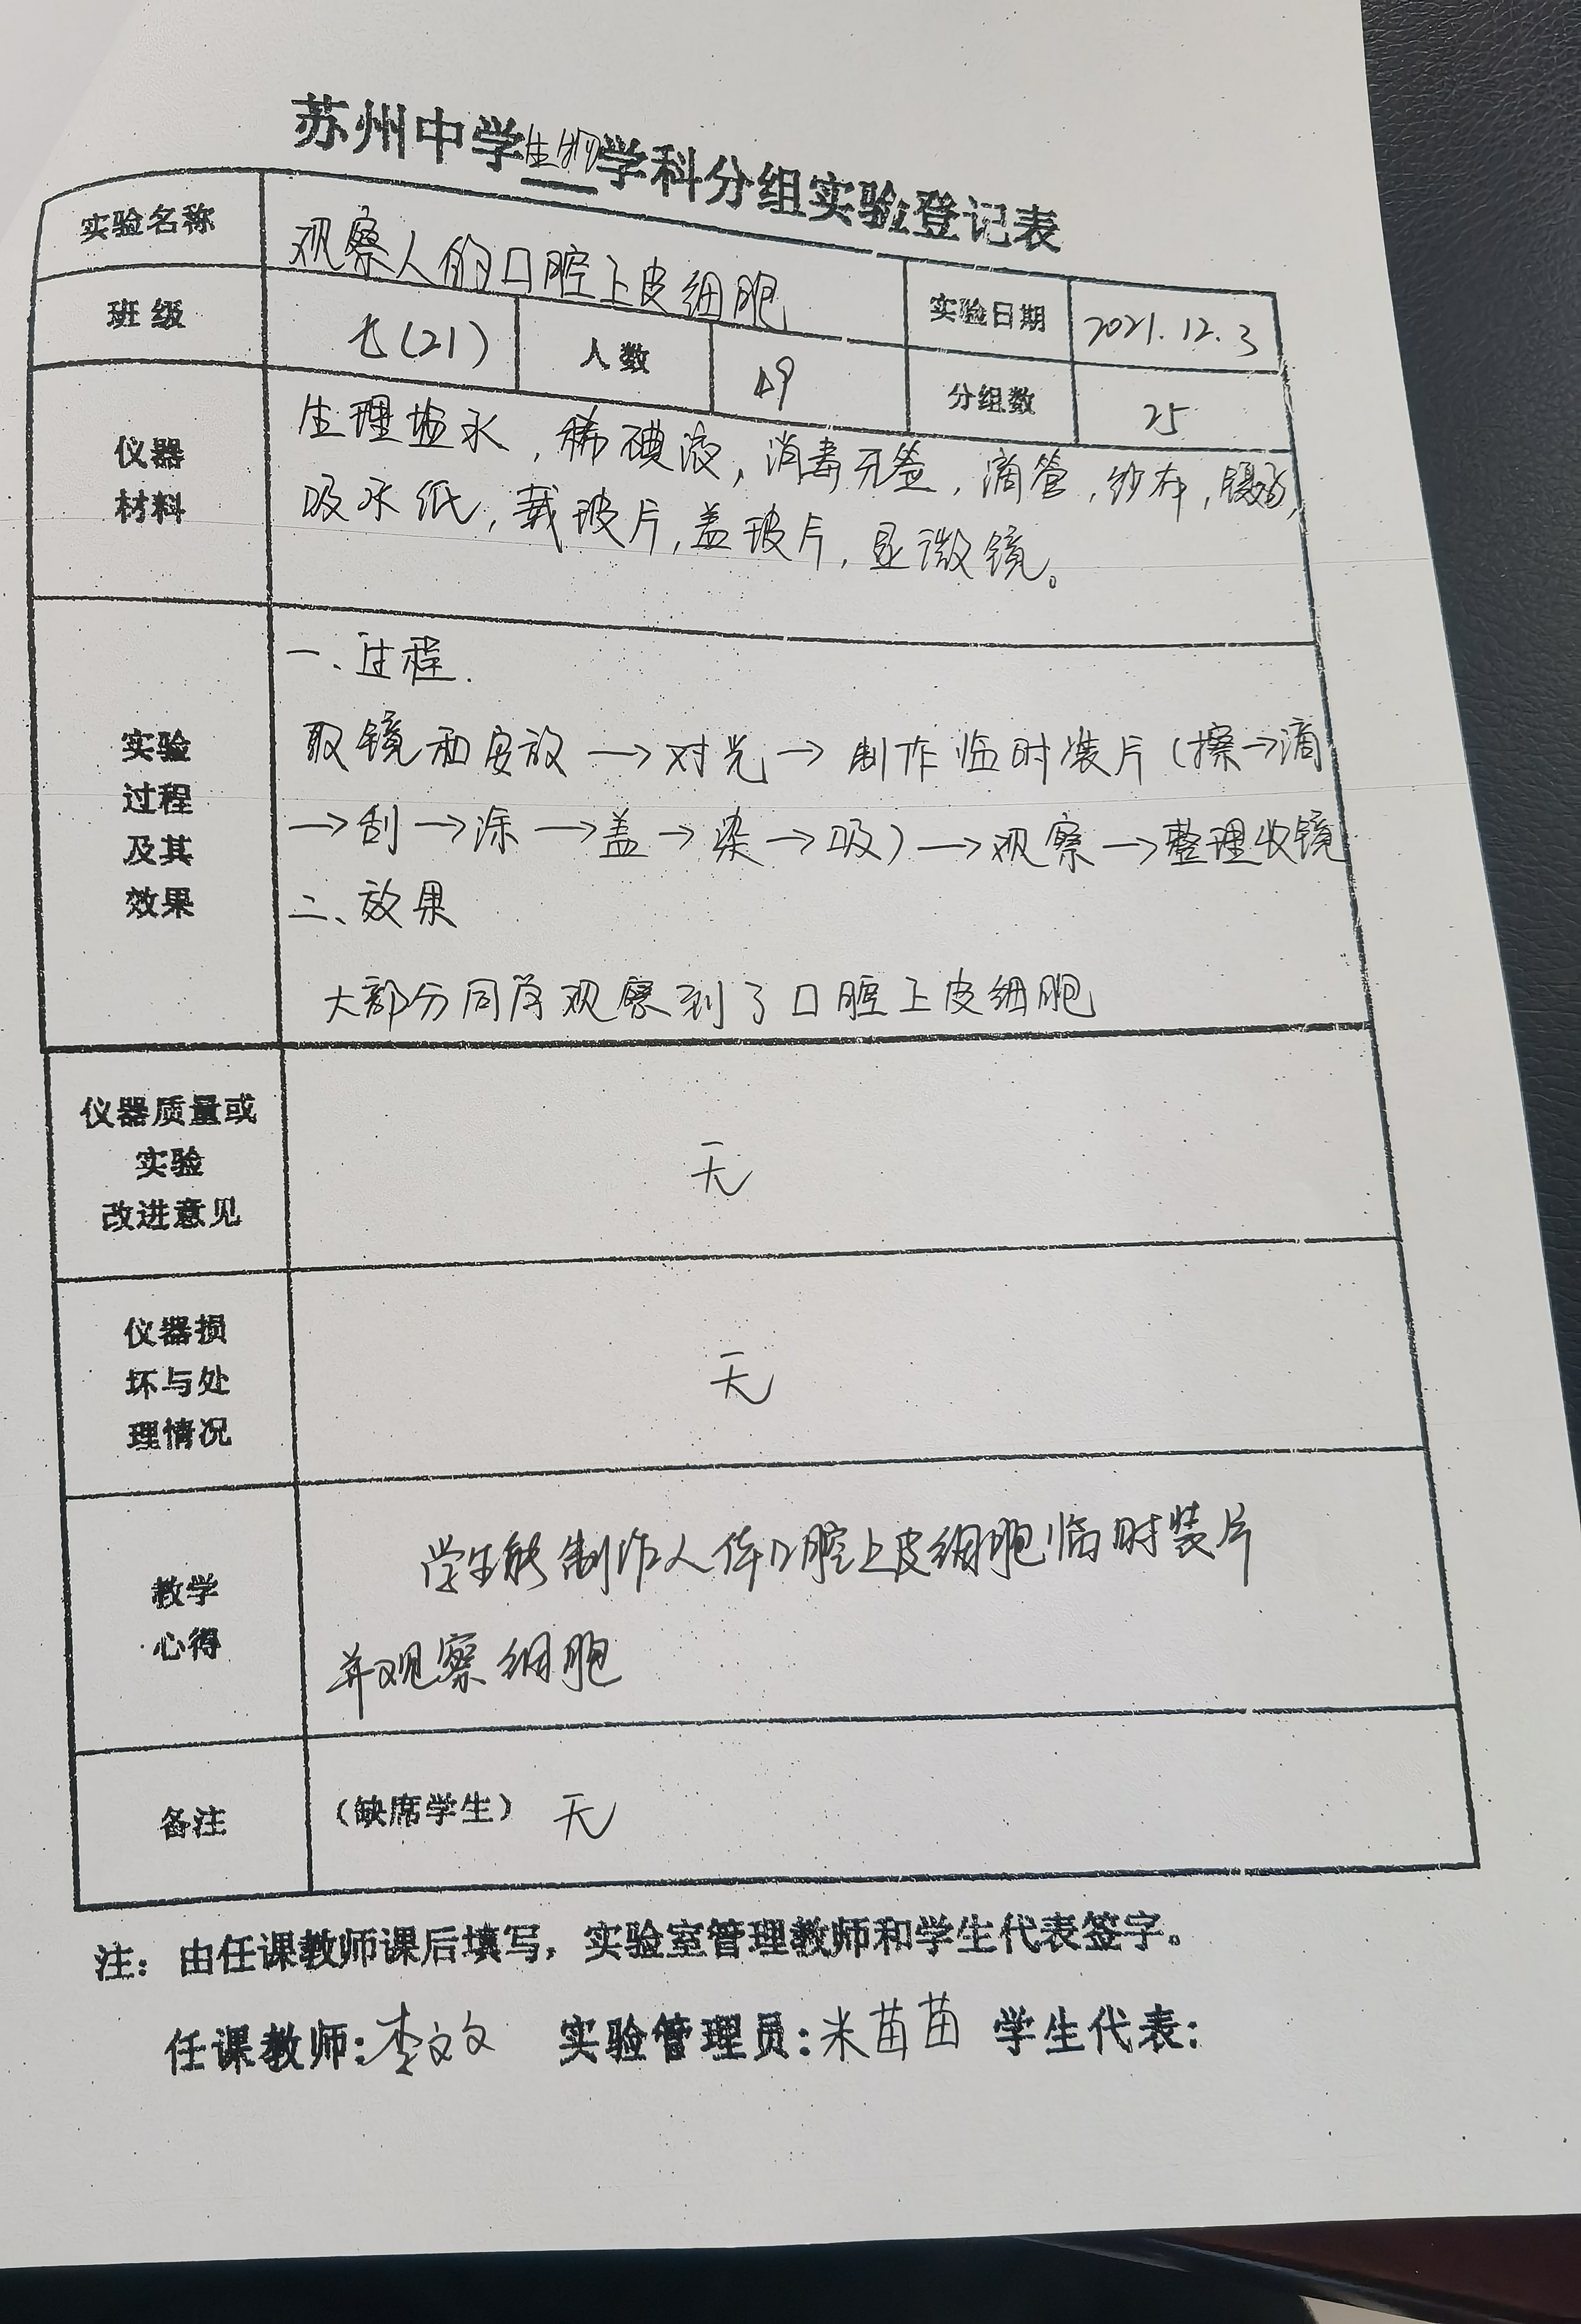 苏州中学生物学科分组实验登记表
实验名称 观察人的口腔上皮细胞 实验日期 2021.12.3
班级 七(21) 人数 49 分组数 25
仪器
材料
生理盐水，稀碘液，消毒牙签，滴管，纱布，镊子，
吸水纸，载玻片，盖玻片，显微镜。
实验
过程
及其
效果
一、过程.
取镜和安放→对光→制作临时装片(擦→滴
→刮→涂→盖→染→吸)→观察→整理收镜
二、效果
大部分同学观察到了口腔上皮细胞
仪器质量或
实验
改进意见
无
仪器损
坏与处
理情况
无
教学
心得
学生能制作人体口腔上皮细胞临时装片
并观察细胞
备注 （缺席学生） 无
注：由任课教师课后填写，实验室管理教师和学生代表签字。
任课教师:李文文 实验管理员:米苗苗 学生代表: